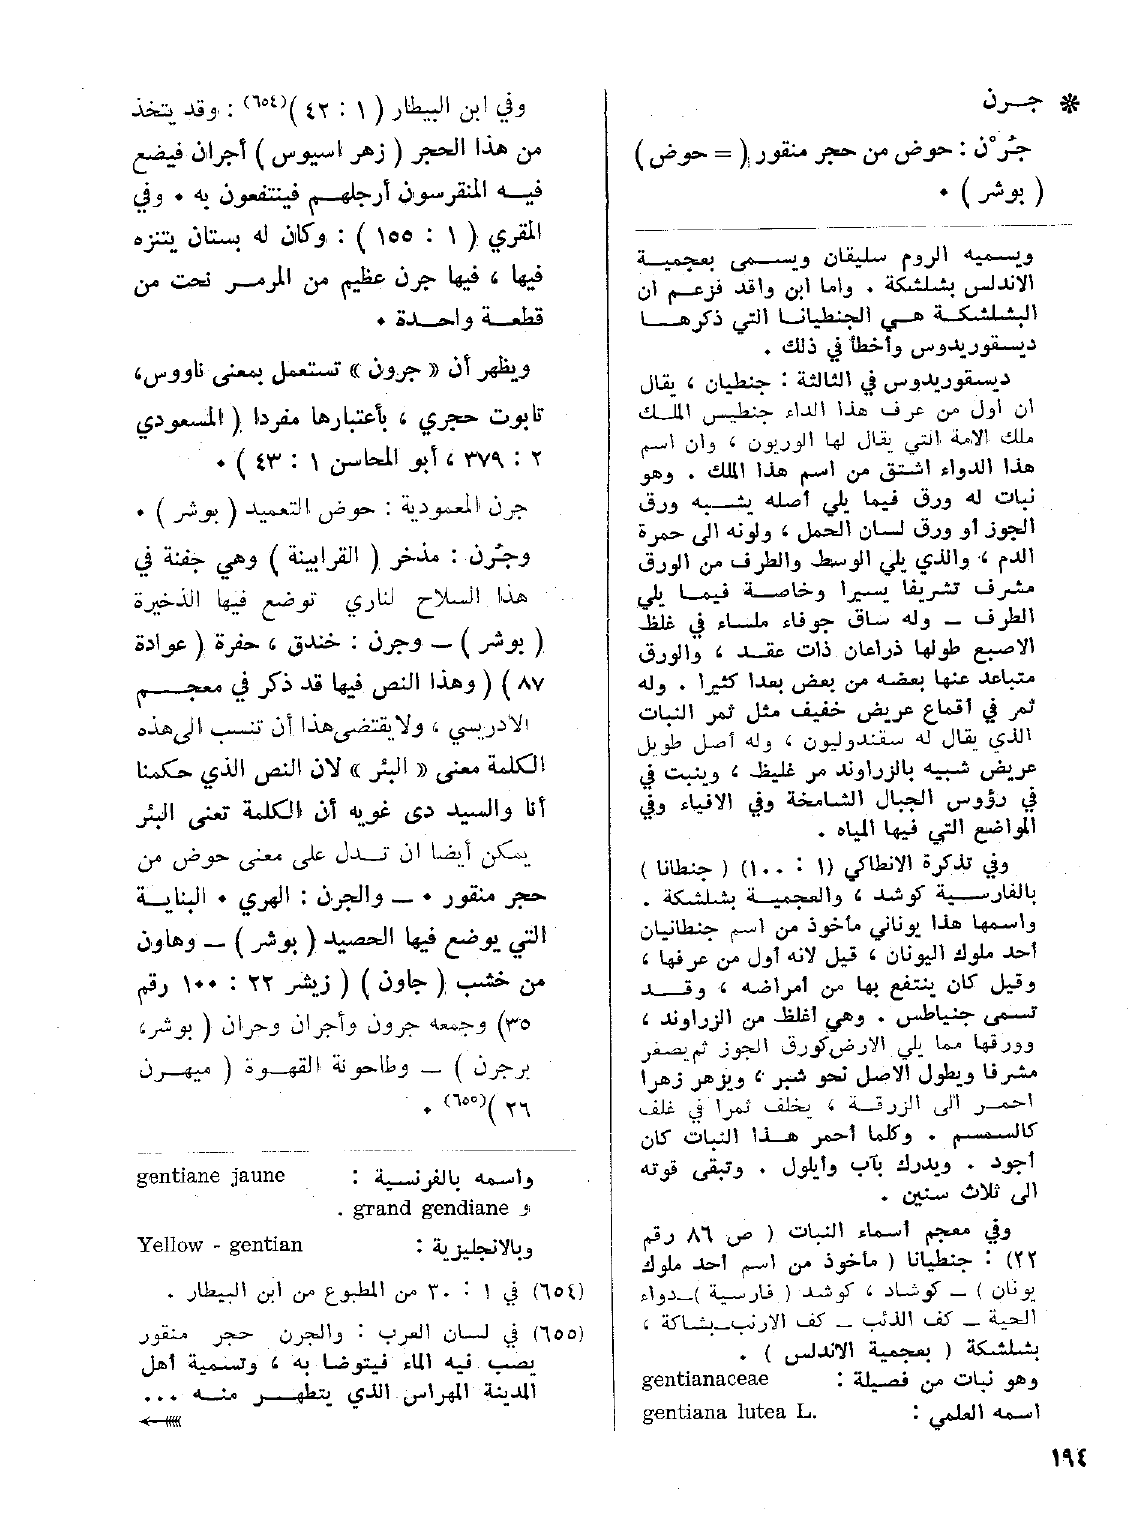 * جـرن
جُرْن : حوض من حجر منقور ( = حوض )
( بوشر ) ٠
ويسميه الروم سليقان ويسمى بعجمية
الاندلس بشلشكة . واما ابن واقد فزعم ان
البشلشكة هي الجنطيانا التي ذكرها
ديسقوريدوس وأخطأ في ذلك .
ديسقوريدوس في الثالثة : جنطيان ، يقال
ان أول من عرف هذا الداء جنطيس الملك
ملك الامة التي يقال لها الوريون ، وان اسم
هذا الدواء اشتق من اسم هذا الملك . وهو
نبات له ورق فيما يلي أصله يشبه ورق
الجوز أو ورق لسان الحمل ، ولونه الى حمرة
الدم ، والذي يلي الوسط والطرف من الورق
مشرف تشريفا يسيرا وخاصة فيما يلي
الطرف – وله ساق جوفاء ملساء في غلظ
الاصبع طولها ذراعان ذات عقد ، والورق
متباعد عنها بعضه من بعض بعدا كثيرا . وله
ثمر في أقماع عريض خفيف مثل ثمر النبات
الذي يقال له سفندوليون ، وله أصل طويل
عريض شبيه بالزراوند مر غليظ ، وينبت في
في رؤوس الجبال الشامخة وفي الافياء وفي
المواضع التي فيها المياه .
وفي تذكرة الانطاكي (١ : ١٠٠) ( جنطانا )
بالفارسية كوشد ، والعجمية بشلشكة .
واسمها هذا يوناني مأخوذ من اسم جنطانيان
أحد ملوك اليونان ، قيل لانه أول من عرفها ،
وقيل كان ينتفع بها من أمراضه ، وقد
تسمى جنياطس . وهي اغلظ من الزراوند ،
وورقها مما يلي الارض كورق الجوز ثم يصغر
مشرفا ويطول الاصل نحو شبر ، ويزهر زهرا
احمر الى الزرقة ، يخلف ثمرا في غلف
كالسمسم . وكلما احمر هذا النبات كان
أجود . ويدرك بآب وأيلول . وتبقى قوته
الى ثلاث سنين .
وفي معجم أسماء النبات ( ص ٨٦ رقم
٢٢) : جنطيانا ( مأخوذ من اسم احد ملوك
يونان ) – كوشاد ، كوشد ( فارسية ) – دواء
الحية – كف الذئب – كف الارنب – بشاكة ،
بشلشكة ( بعجمية الاندلس ) .
وهو نبات من فصيلة : gentianaceae
اسمه العلمي : gentiana lutea L.
وفي ابن البيطار ( ١ : ٤٢ )(٦٥٤) : وقد يتخذ
من هذا الحجر ( زهر اسيوس ) أجران فيضع
فيه المنقرسون أرجلهم فينتفعون به ٠ وفي
المقري ( ١ : ١٥٥ ) : وكان له بستان يتنزه
فيها ، فيها جرن عظيم من المرمر نحت من
قطعة واحدة ٠
ويظهر أن « جرون » تستعمل بمعنى ناووس،
تابوت حجري ، بأعتبارها مفردا ( المسعودي
٢ : ٣٧٩ ، أبو المحاسن ١ : ٤٣ ) ٠
جرن المعمودية : حوض التعميد ( بوشر ) ٠
وجُرن : مذخر ( القرابينة ) وهي جفنة في
هذا السلاح لناري توضع فيها الذخيرة
( بوشر ) – وجرن : خندق ، حفرة ( عوادة
٨٧ ) ( وهذا النص فيها قد ذكر في معجم
الادريسي ، ولايقتضي هذا أن تنسب الى هذه
الكلمة معنى « البئر » لان النص الذي حكمنا
أنا والسيد دى غويه أن الكلمة تعنى البئر
يمكن أيضا ان تدل على معنى حوض من
حجر منقور ٠ – والجرن : الهري ٠ البناية
التي يوضع فيها الحصيد ( بوشر ) – وهاون
من خشب ( جاون ) ( زيشر ٢٢ : ١٠٠ رقم
٣٥) وجمعه جرون وأجران وجران ( بوشر،
برجرن ) – وطاحونة القهوة ( ميهرن
٢٦ )(٦٥٥) ٠
واسمه بالفرنسية : gentiane jaune
و grand gendiane .
وبالانجليزية : Yellow - gentian
(٦٥٤) في ١ : ٣٠ من المطبوع من ابن البيطار .
(٦٥٥) في لسان العرب : والجرن حجر منقور
يصب فيه الماء فيتوضا به ، وتسمية أهل
المدينة المهراس الذي يتطهر منه ...
١٩٤